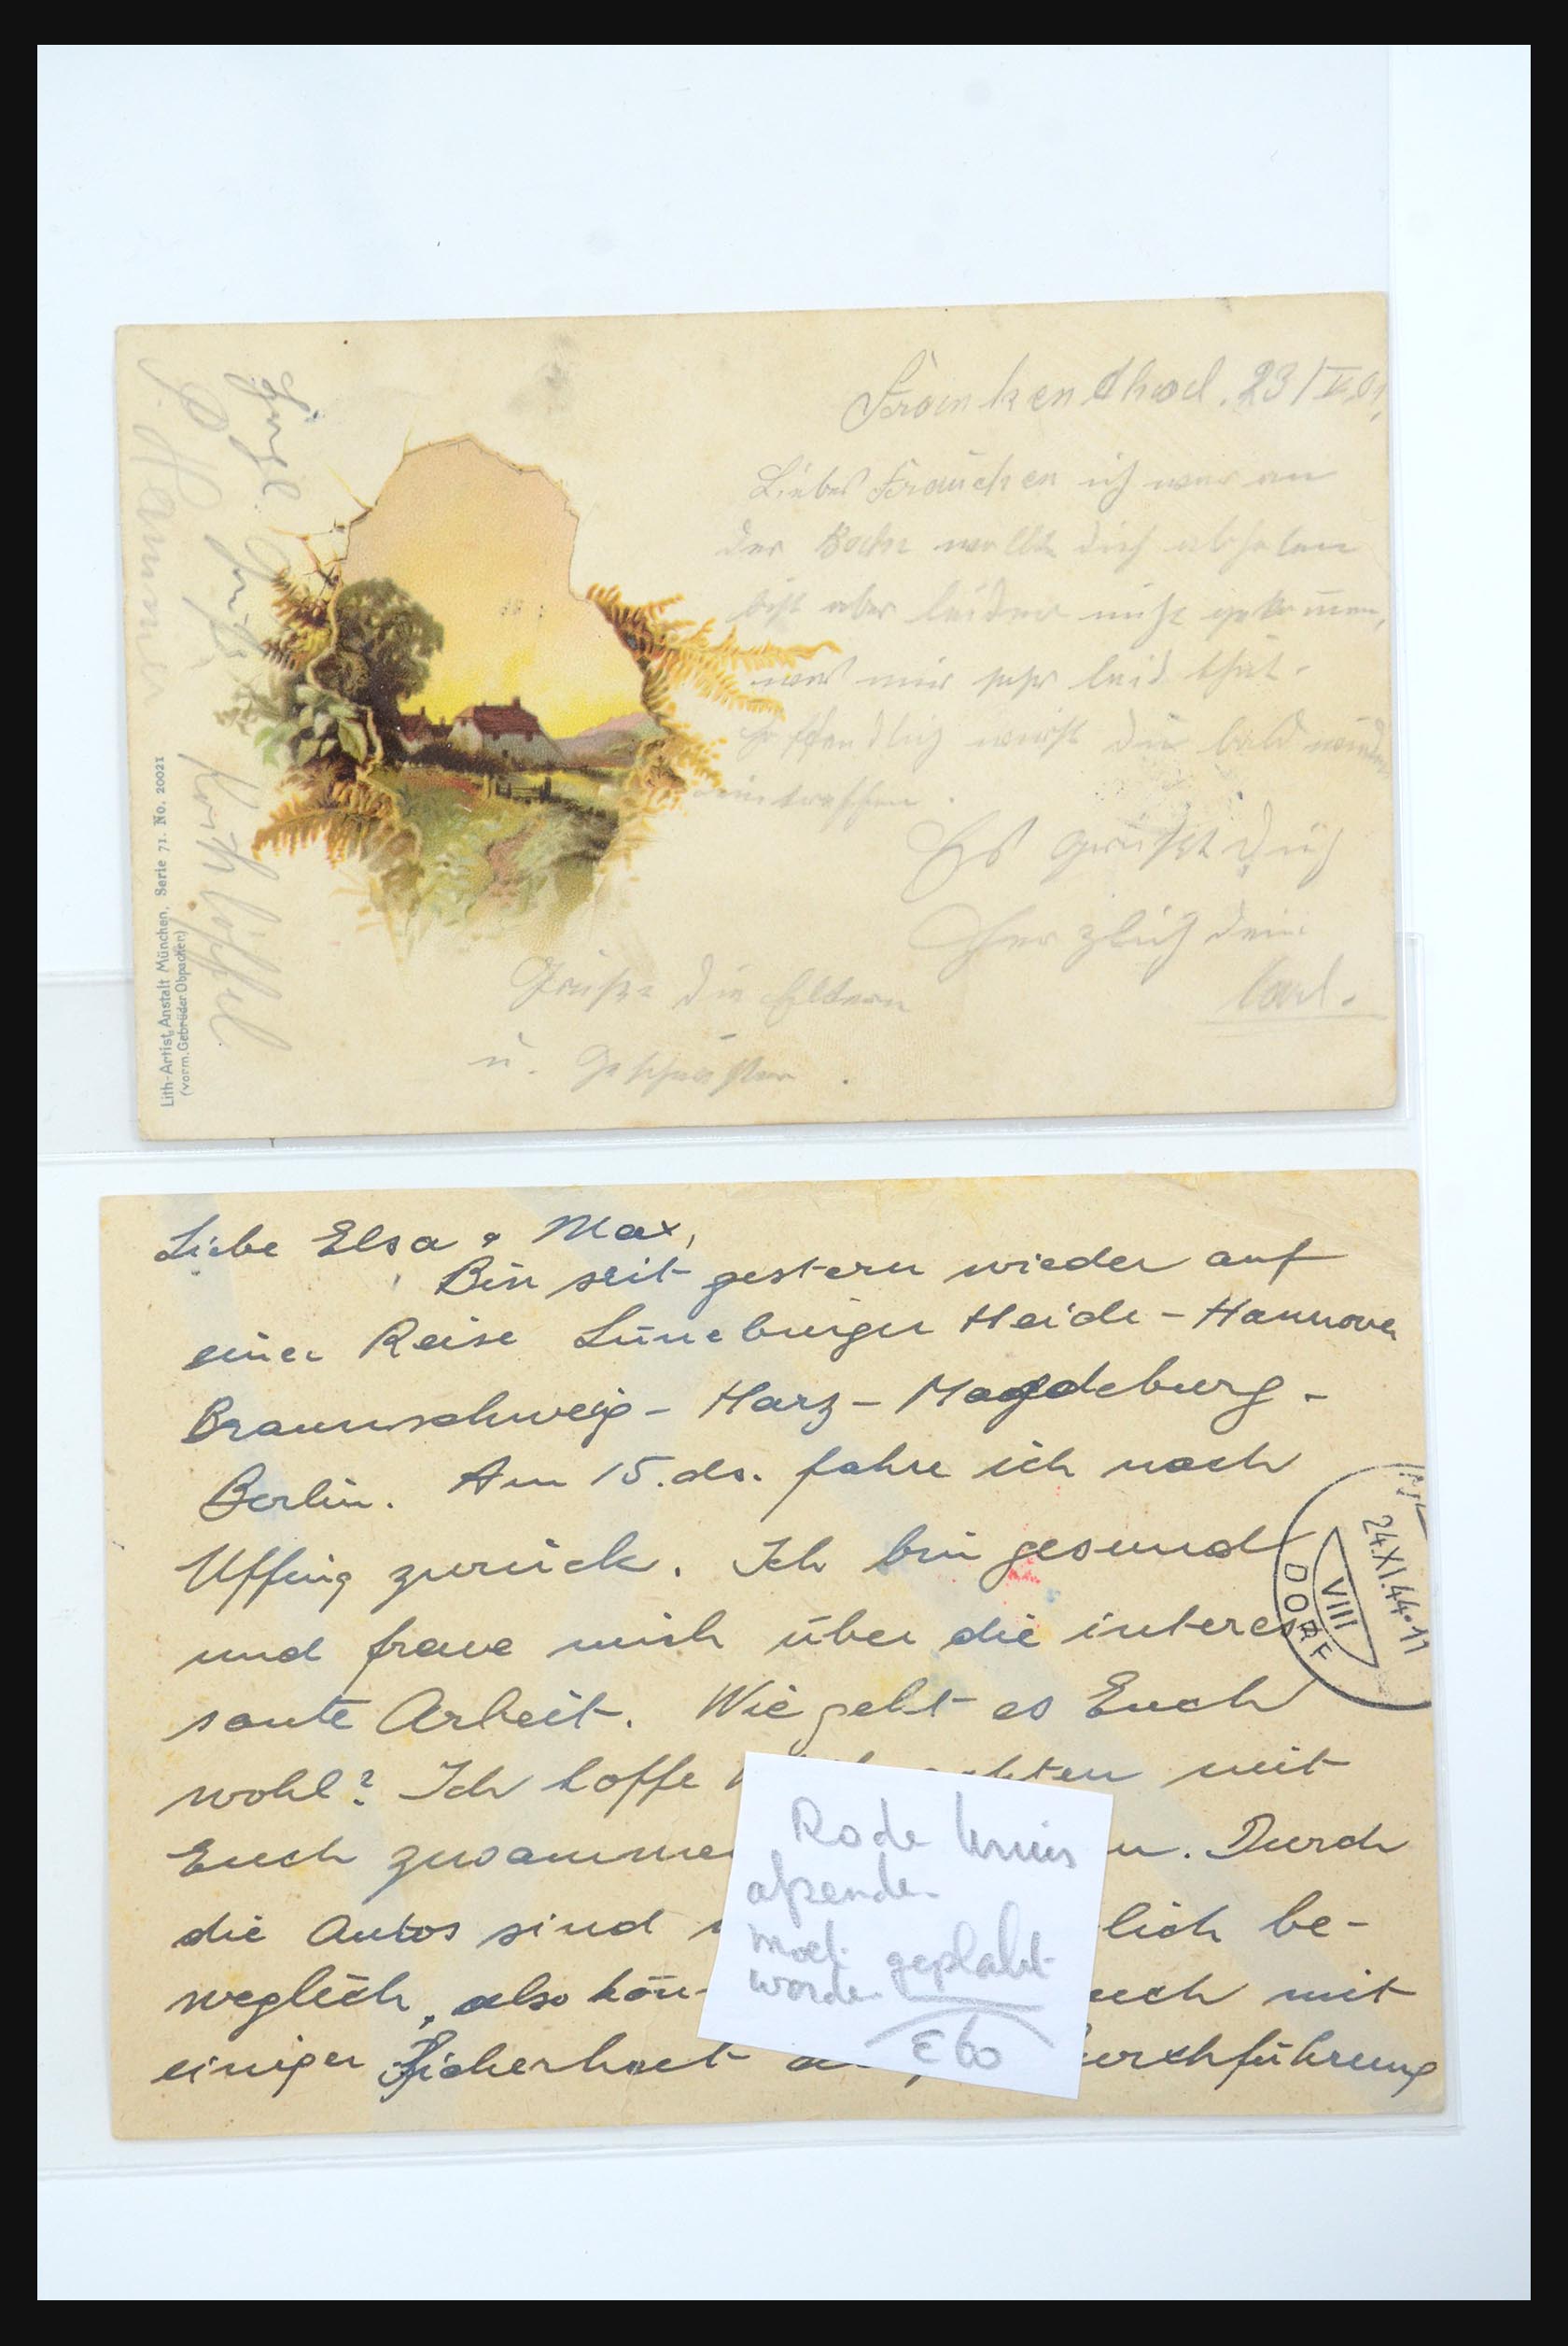 Frankenthal. 23/V.01.
Liebes Frauchen ich war an
der Bahn wollte dich abholen
bist aber leider nicht gekom̄en,
was mir sehr leid that.
Hoffendlich wirst du bald wieder
eintreffen.
Es grüßt dich
Herzlich dein
Carl.
Grüße die Eltern
u. Geschwister.
Lith.-Artist. Anstalt München. Serie 71. No. 20021
(vorm. Gebrüder Obpacher)
Liebe Elsa & Max,
Bin seit gestern wieder auf
einer Reise Lüneburger Heide - Hannover
Braunschweig - Harz - Magdeburg -
Berlin. Am 15. ds. fahre ich nach
Uffing zurück. Ich bin gesund
und freue mich über die interes
sante Arbeit. Wie geht es Euch
wohl? Ich hoffe mit
Euch zusammen Durch
die Autos sind lich be-
weglich, also kön- mit
einiger Sicherheit Durchführung
24.XI.44.-11
VIII
DORF
Rode kruis
afzender
moet geplakt
worden
€ 60